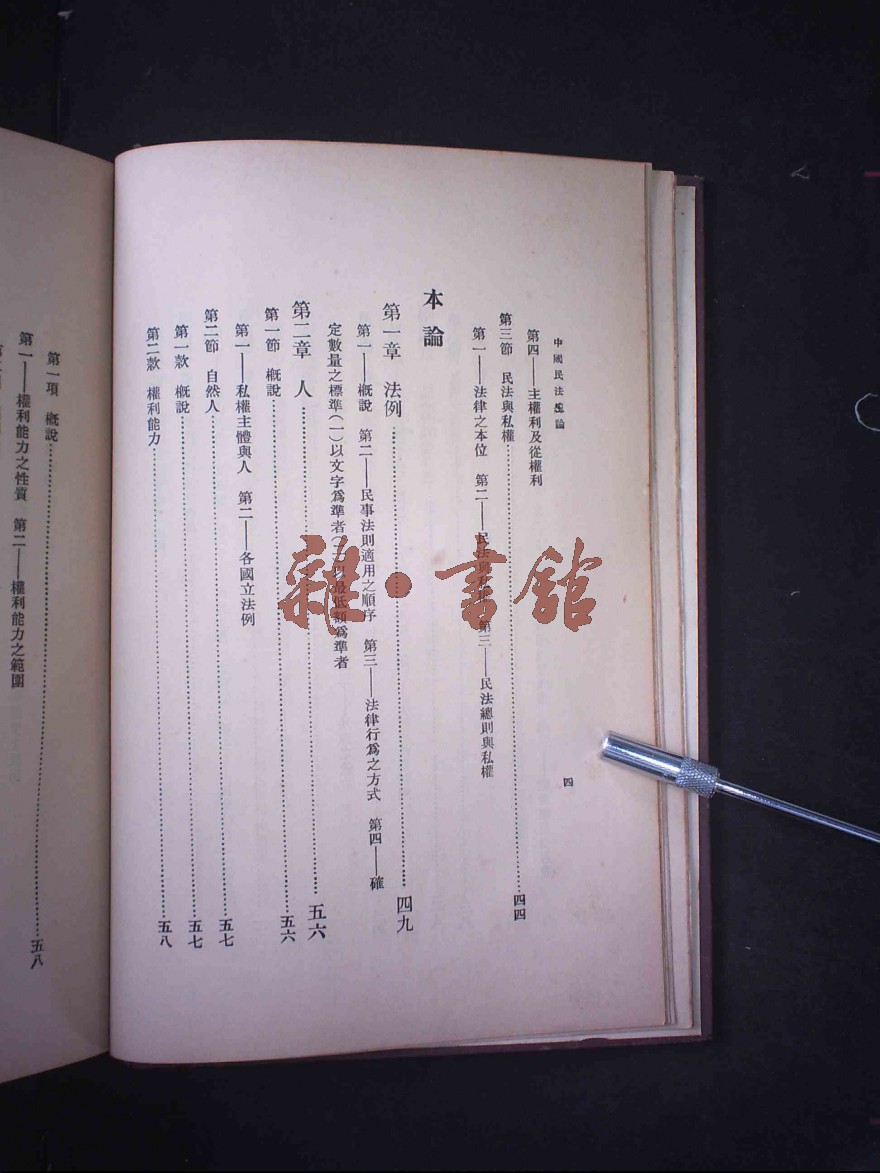 中國民法總論
四
第四——主權利及從權利
第三節 民法與私權……四四
第一——法律之本位 第二——民法與私權 第三——民法總則與私權
本論
第一章 法例……四九
第一——概說 第二——民事法則適用之順序 第三——法律行爲之方式 第四——確
定數量之標準(一)以文字爲準者(二)以最低額爲準者
第二章 人……五六
第一節 概說……五六
第一——私權主體與人 第二——各國立法例
第二節 自然人……五七
第一款 概說……五七
第二款 權利能力……五八
第一項 概說……五八
第一——權利能力之性質 第二——權利能力之範圍
雜·書館